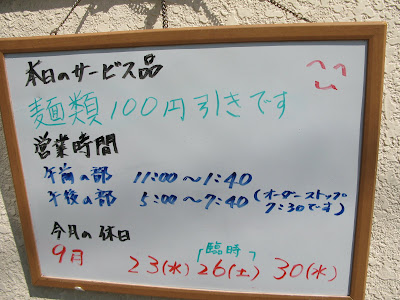 本日のサービス品
麺類100円引きです
営業時間
午前の部 11:00～1:40
午後の部 5:00～7:40(オーダーストップ
7:30です)
今月の休日
「臨時」
9月 23(水) 26(土) 30(水)